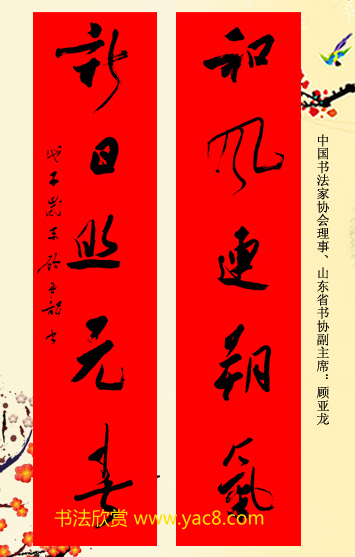 和风連朔氣
新日照元春
戊子歲末顧亞龍書
中国书法家协会理事、山东省书协副主席：顾亚龙
书法欣赏 www.yac8.com